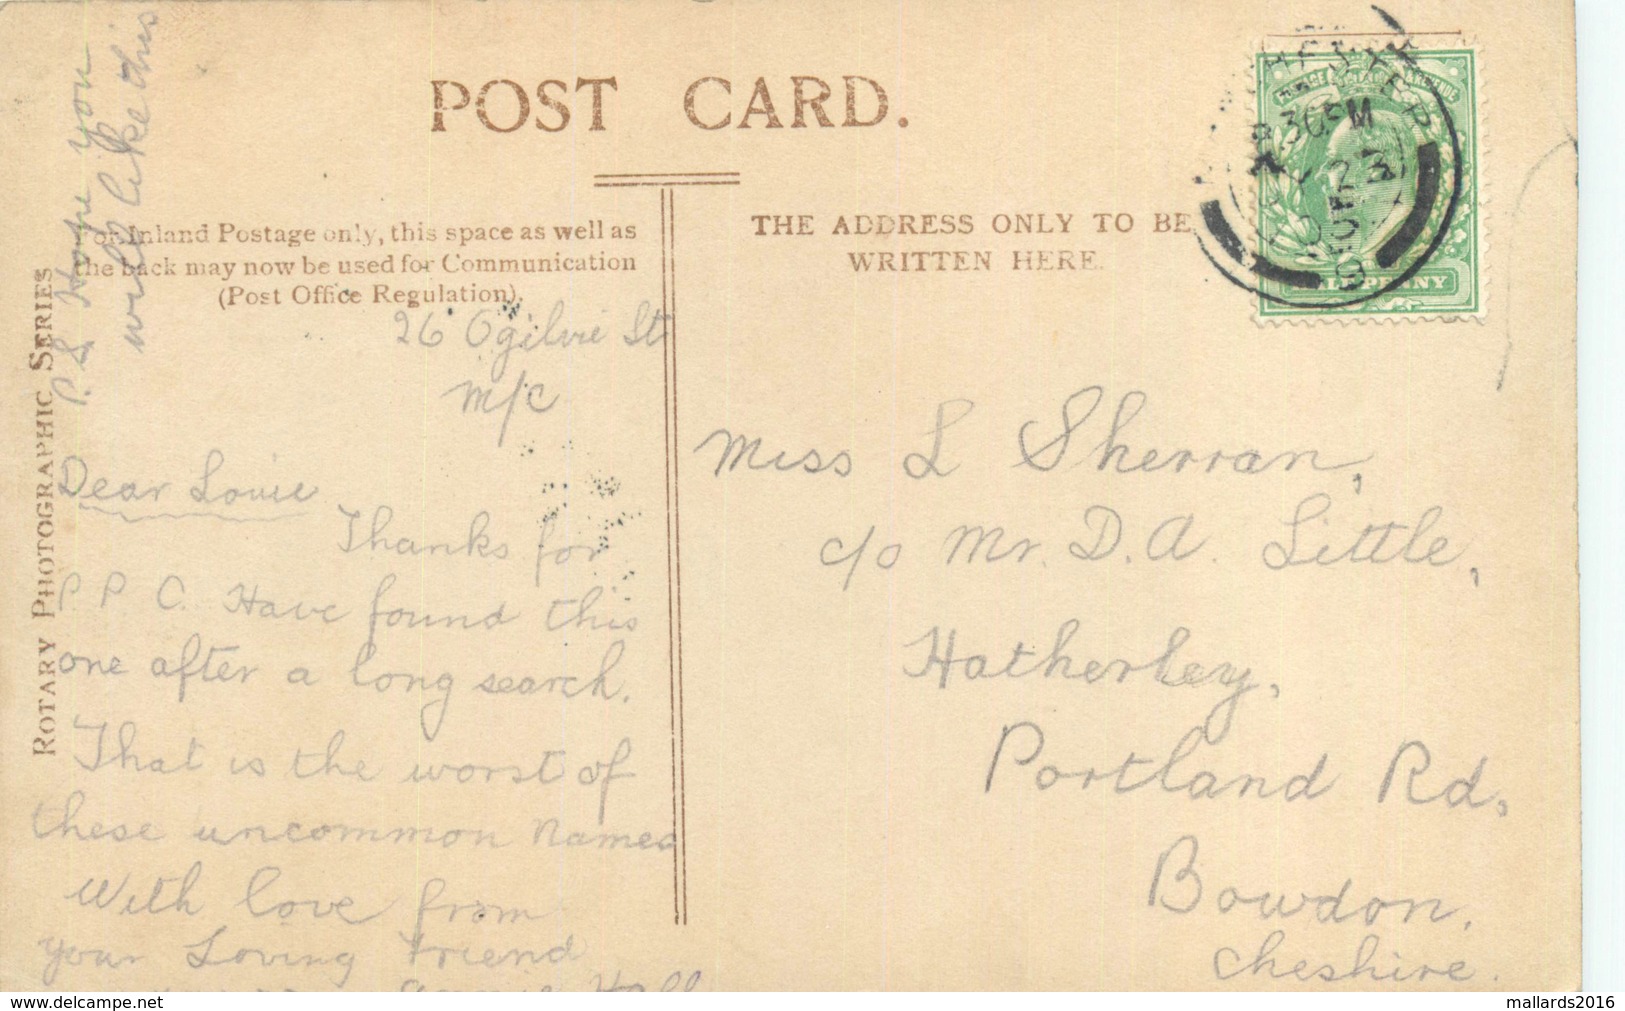 POST CARD.
For Inland Postage only, this space as well as
the back may now be used for Communication
(Post Office Regulation).
THE ADDRESS ONLY TO BE
WRITTEN HERE.
ROTARY PHOTOGRAPHIC SERIES
P.S. Hope you
will like this
26 Ogilvie St
M/C
Dear Louie
Thanks for
P. P. C. Have found this
one after a long search.
That is the worst of
these uncommon names
With love from
your Loving Friend
Annie Hall
Miss L Sherran,
c/o Mr. D. A. Little,
Hatherley,
Portland Rd,
Bowdon,
Cheshire.
HALFPENNY
delcampe.net
mallards2016